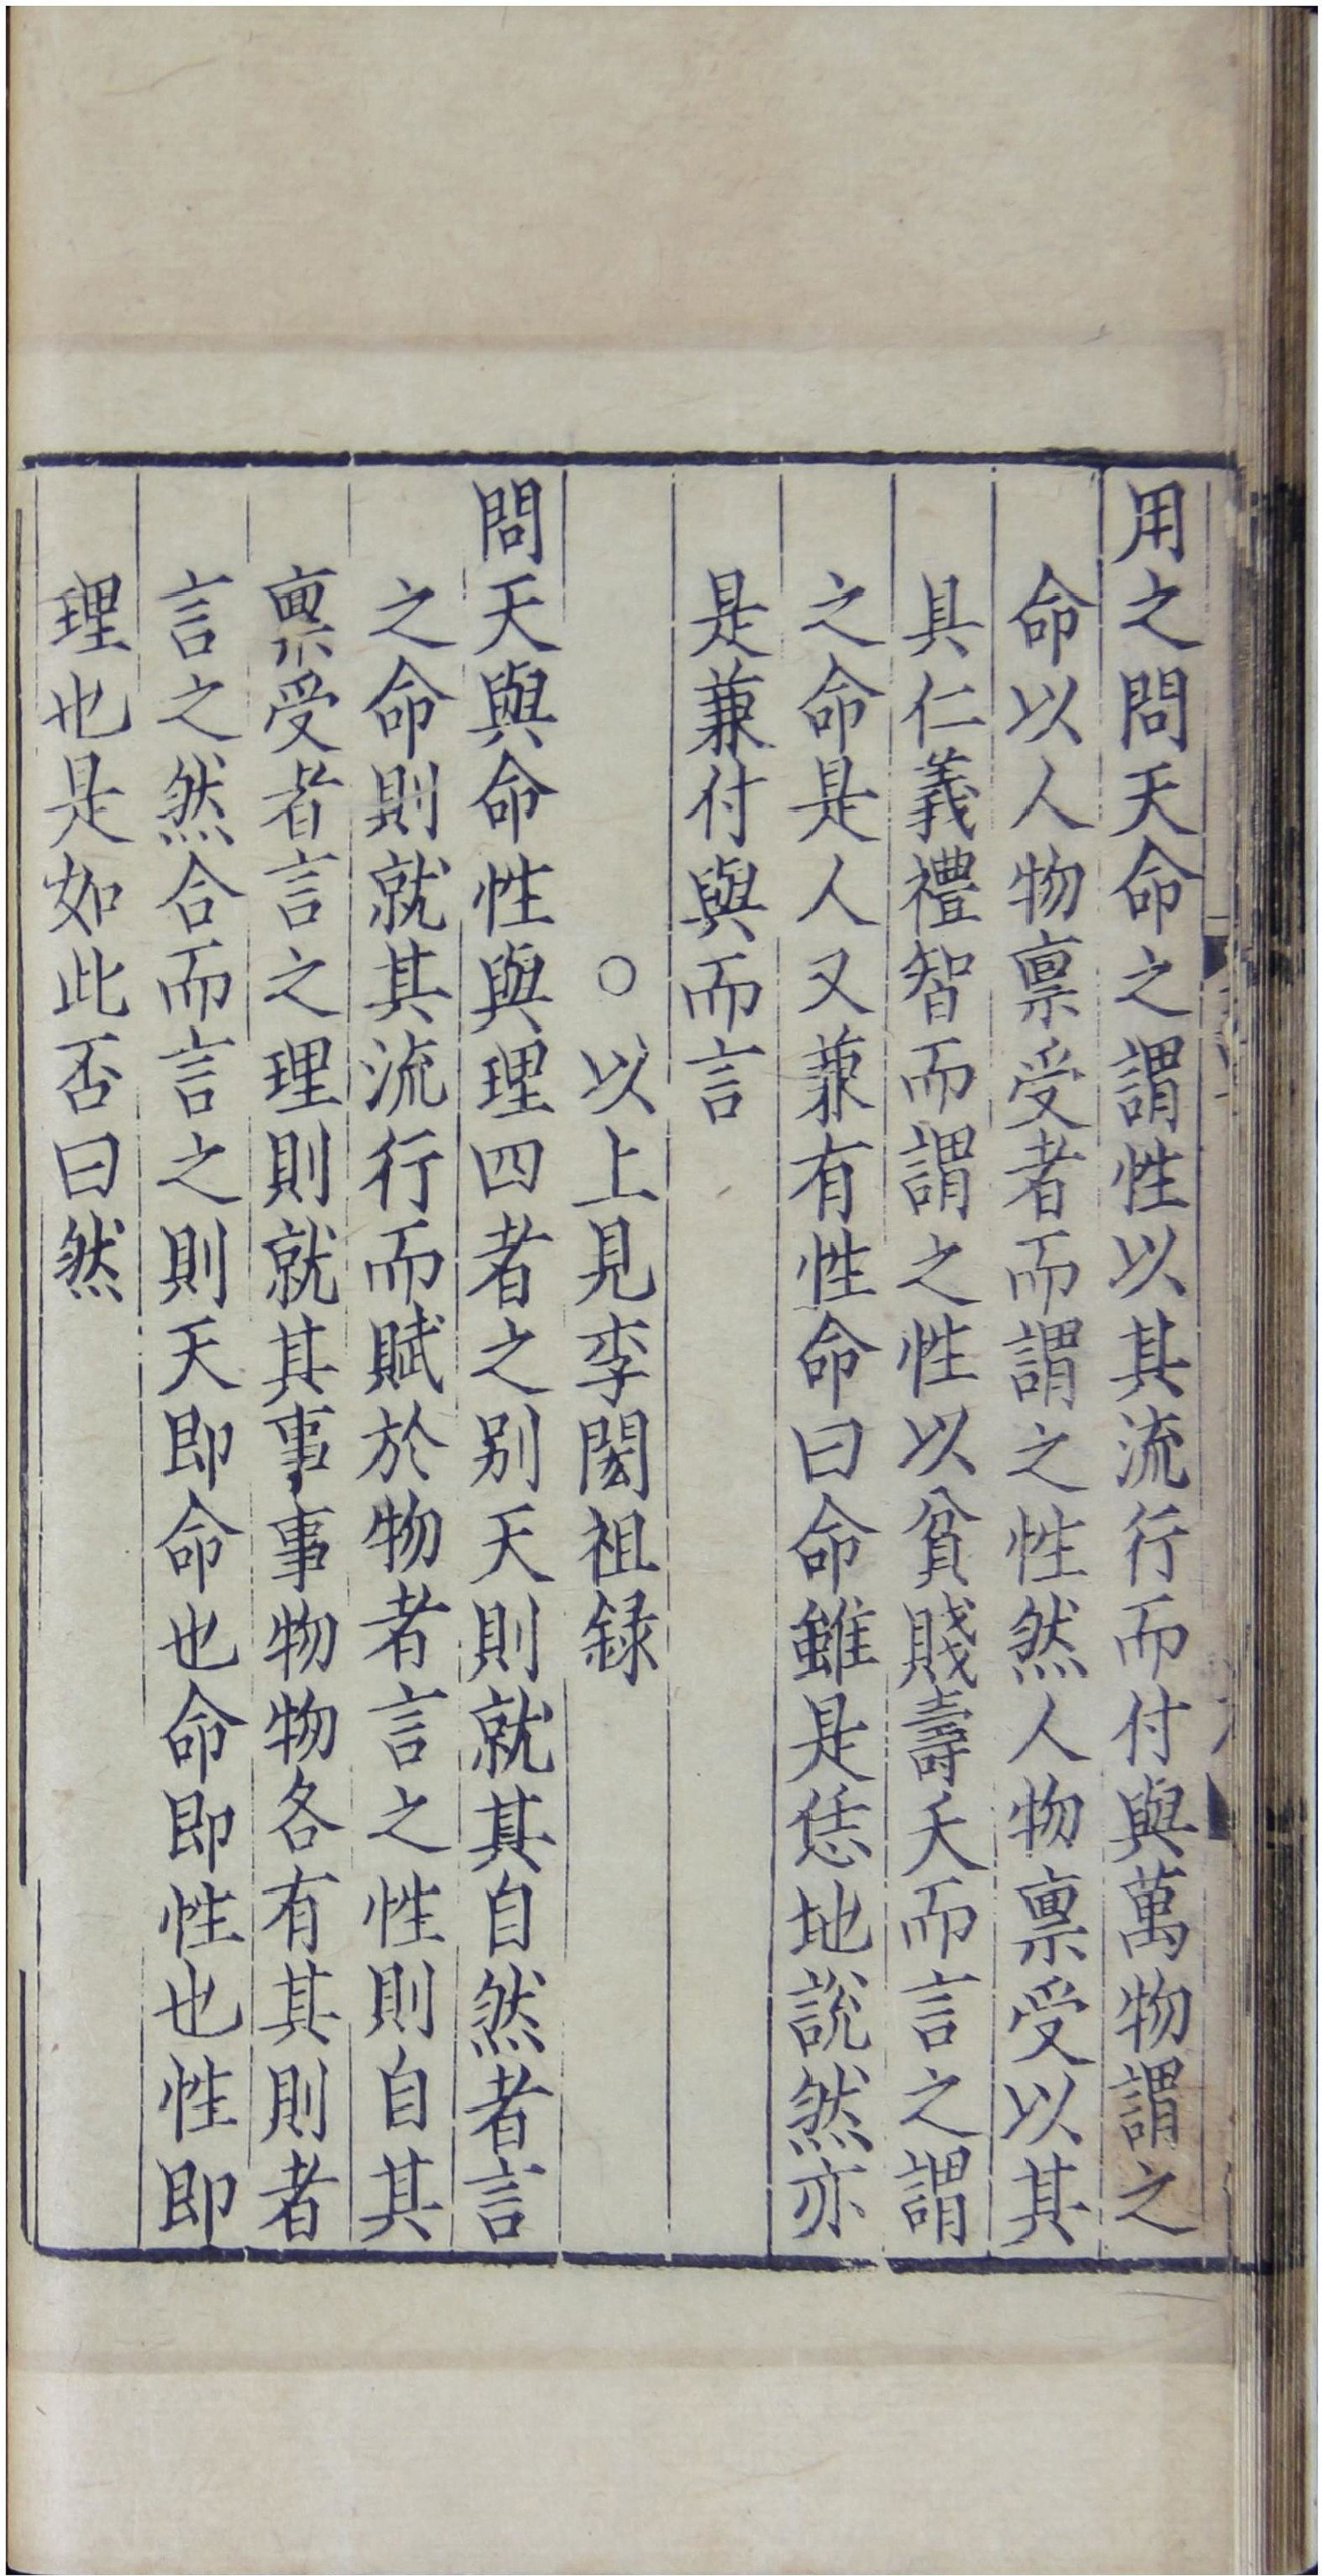 用之問天命之謂性以其流行而付與萬物謂之
命以人物禀受者而謂之性然人物禀受以其
具仁義禮智而謂之性以貧賤壽夭而言之謂
之命是人又兼有性命曰命雖是恁地說然亦
是兼付與而言
○以上見李閎祖録
問天與命性與理四者之别天則就其自然者言
之命則就其流行而賦於物者言之性則自其
禀受者言之理則就其事事物物各有其則者
言之然合而言之則天即命也命即性也性即
理也是如此否曰然